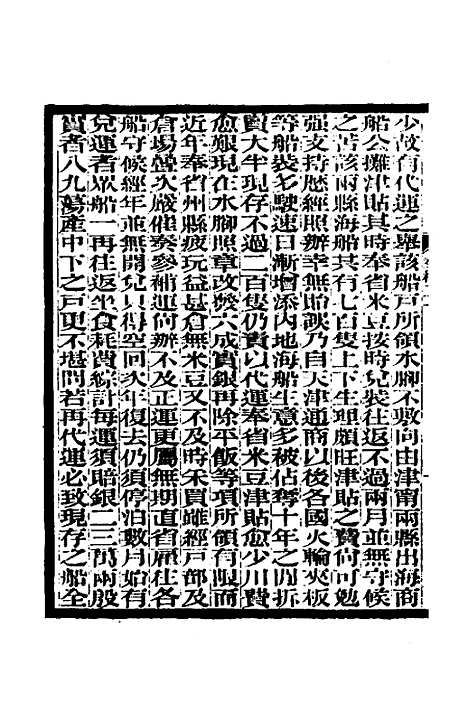 少故有代運之舉該船戶所領水腳不敷向由津甯兩縣出海商
船公攤津貼其時奉省米豆按時兌裝往返不過兩月並無守候
之苦該兩縣海船共有七百隻上下生理頗旺津貼之費尙可勉
强支持歷經照辦幸無貽誤乃自天津通商以後各國火輪夾板
等船裝多駛速日漸增添內地海船生意多被佔奪十年之間折
賣大半現存不過二百隻仍責以代運奉省米豆津貼愈少川費
愈艱現在水腳照章改獎六成實銀再除平飯等項所領有限而
近年奉省州縣疲玩益甚倉無米豆又不及時采買雖經戶部及
倉場聲次嚴催奏參補運何辦不及正運更屬無期直省雇往各
船守候經年並無開兌只得空回次年復去仍須停泊數月始有
兌運者眾船一再往返坐食耗費綜計每運須賠銀二三萬兩股
實者八九蕩產中下之戶更不堪問若再代運必致現存之船全